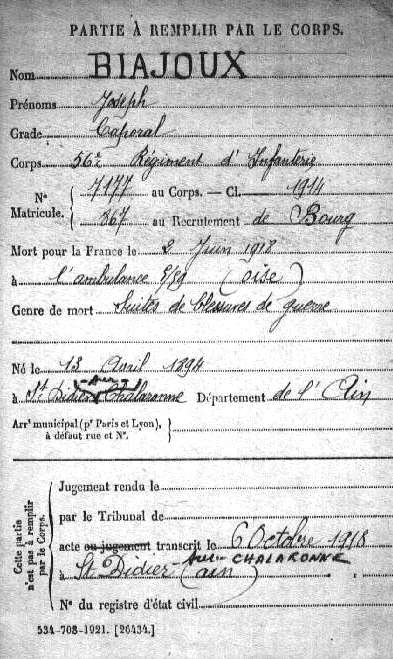 PARTIE À REMPLIR PAR LE CORPS.
Nom BIAJOUX
Prénoms Joseph
Grade Caporal
Corps 56e Régiment d'Infanterie
N° Matricule. { 7177 au Corps. — Cl. 1914
867 au Recrutement de Bourg
Mort pour la France le 2 Juin 1918
à l'ambulance (Oise)
Genre de mort Suites de blessures de guerre
Né le 13 Avril 1894
à St Didier sur Chalaronne Département de l'Ain
Arrt municipal (pr Paris et Lyon), à défaut rue et N°.
Cette partie n'est pas à remplir par le Corps.
Jugement rendu le
par le Tribunal de
acte ou jugement transcrit le 6 Octobre 1918
à St Didier sur CHALARONNE (Ain)
N° du registre d'état civil
534-708-1921. [26434.]